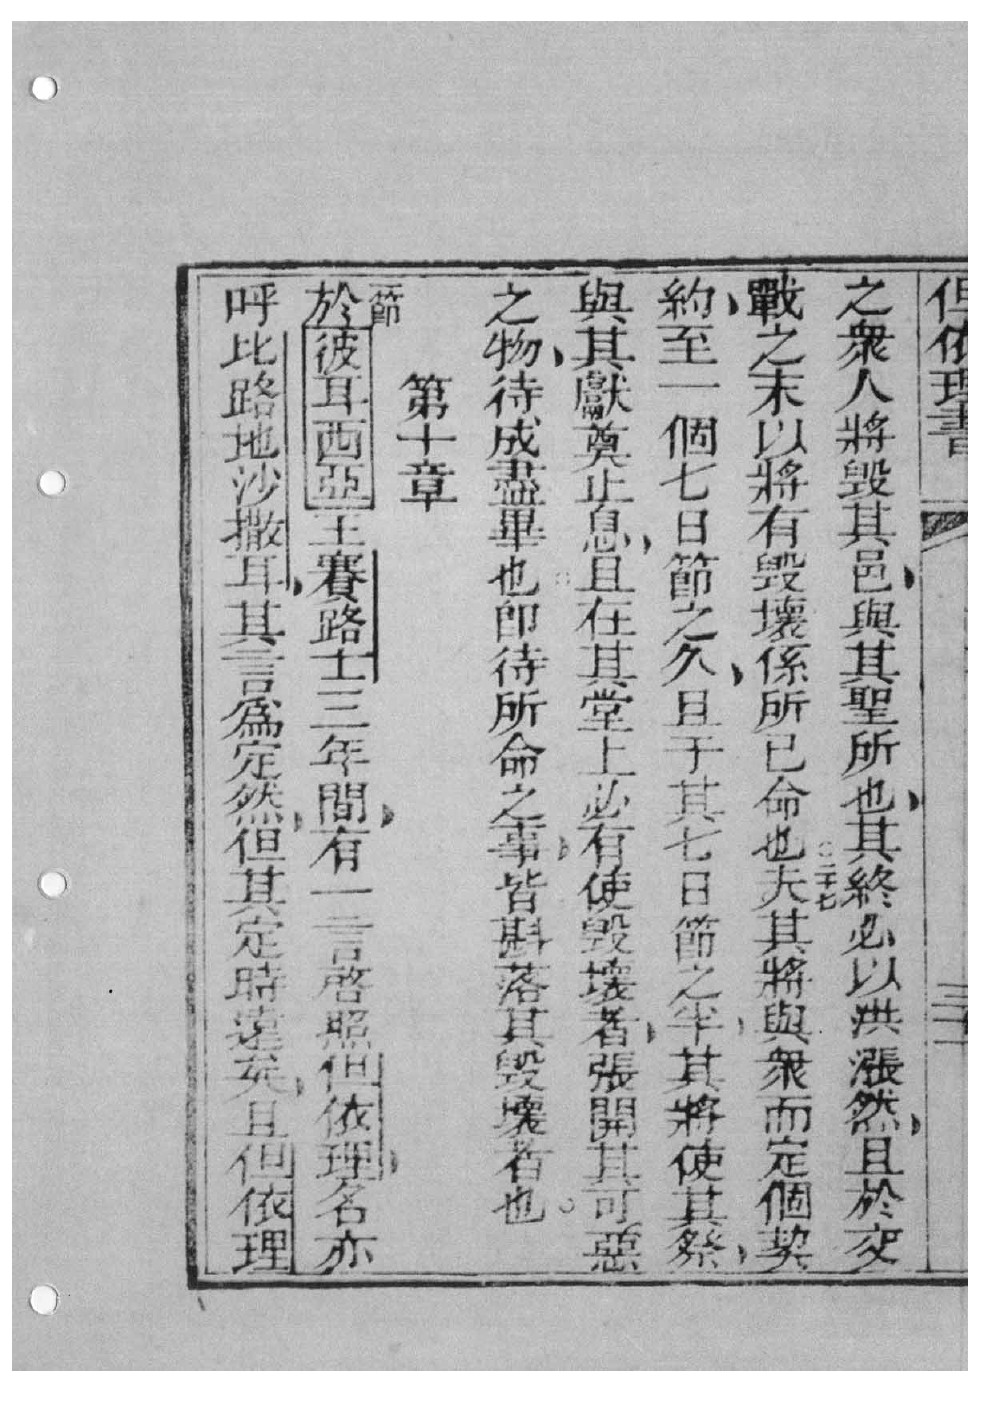 但依理書 三十一
之衆人將毀其邑與其聖所也其終必以洪漲然且於交
戰之末以將有毀壞係所已命也○二十七夫其將與衆而定個契
約至一個七日節之久且于其七日節之半其將使其祭
與其獻奠止息且在其堂上必有使毀壞者張開其可惡
之物待成盡畢也卽待所命之事皆斟落其毀壞者也
第十章
一節於彼耳西亞王賽路士三年間有一言啓照但依理名亦
呼比路地沙撒耳其言爲定然但其定時遠矣且但依理